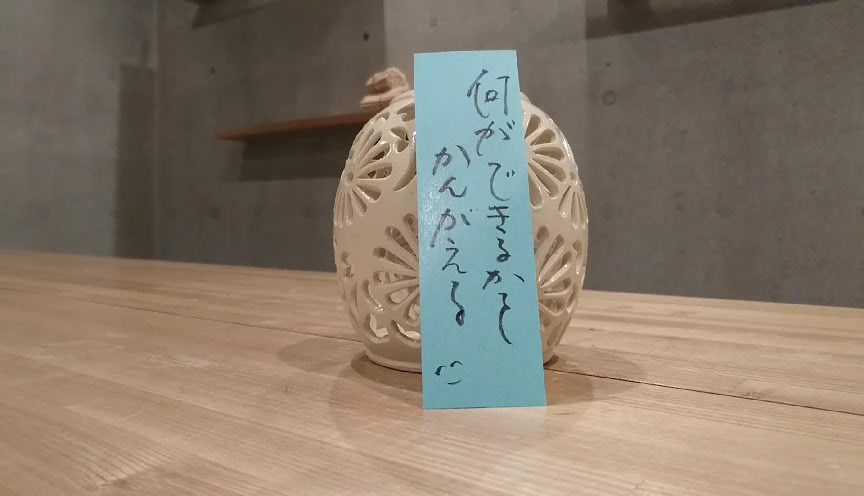 何ができるかを
かんがえる